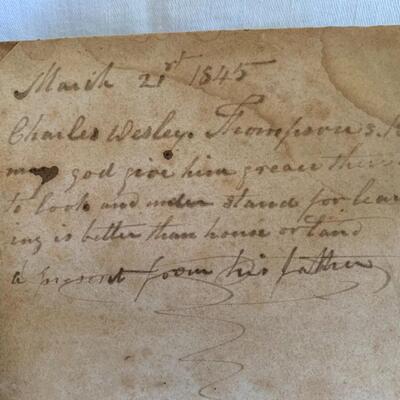 March 21st 1845
Charles Wesley Thompson s
may god give him greace
to look and under stand for lear
ing is better than house or land
a present from his father